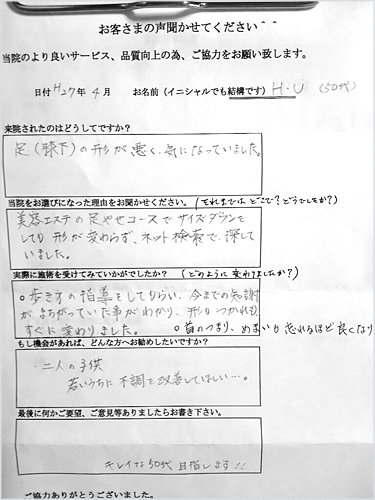 お客さまの声聞かせてください＾＾
当院のより良いサービス、品質向上の為、ご協力をお願い致します。
日付 H27年 4月 お名前（イニシャルでも結構です） H・U （50代）
来院されたのはどうしてですか？
足（膝下）の形が悪く、気になっていました。
当院をお選びになった理由をお聞かせください。（それまではどこで？どうでしたか？）
美容エステの足やせコースでサイズダウンを
しても形が変わらず、ネット検索で、探して
いました。
実際に施術を受けてみていかがでしたか？（どのように変わりましたか？）
○歩き方の指導をしてもらい、今までの知識
がまちがっていた事がわかり、形も つかれも
すぐに変わりました。 ○首のつまり、めまいも忘れるほど良くなり
もし機会があれば、どんな方へお勧めしたいですか？
・二人の子供
若いうちに不調を改善してほしい…。
最後に何かご要望、ご意見等ありましたらお書き下さい。
キレイな50代目指します!!
ご協力ありがとうございました。